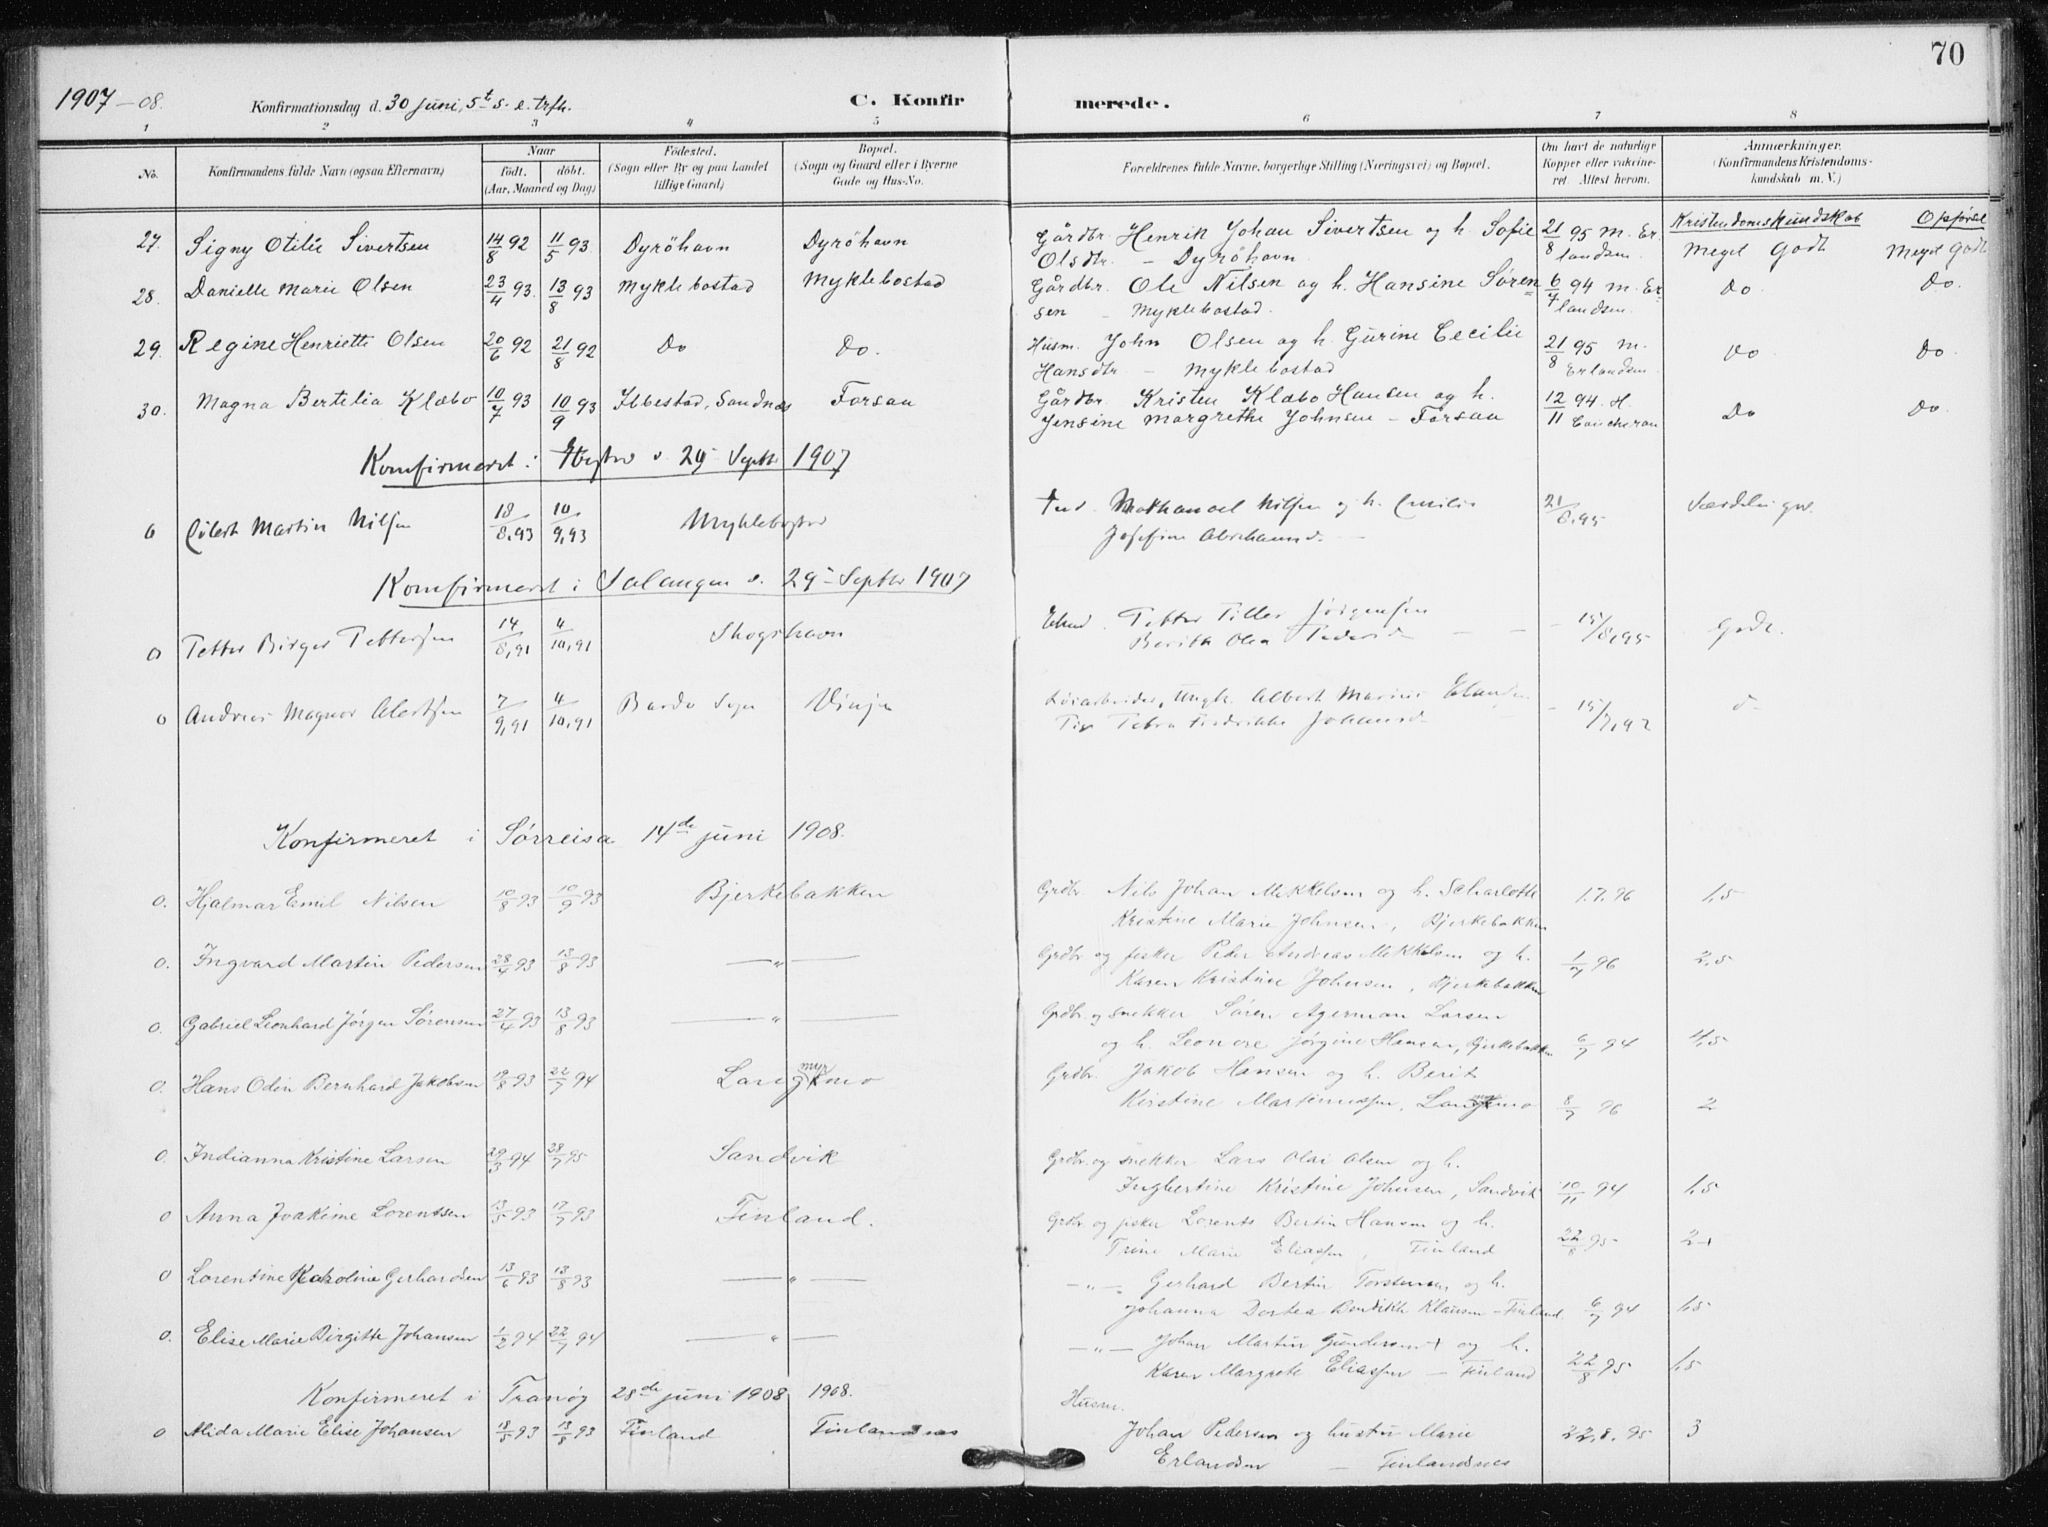 70
1907-08. Konfirmationsdag d. 30 juni, 5t s. e. trfh. C. Konfirmerede.
1 2 3 4 5 6 7 8
No. Konfirmandens fulde Navn (ogsaa Efternavn) Naar født. døbt. (Aar, Maaned og Dag) Fødested. (Sogn eller By og paa Landet tillige Gaard) Bopæl. (Sogn og Gaard eller i Byerne Gade og Hus-No. Forældrenes fulde Navne, borgerlige Stilling (Næringsvei) og Bopæl. Om havt de naturlige Kopper eller vaccineret. Attest herom. Anmærkninger. (Konfirmandens Kristendomskundskab m. V.)
Kristendomskundskab Opførsel
27. Signy Otilie Sivertsen 14/8 92 11/5 93 Dyröhavn Dyröhavn Gårdbr. Henrik Johan Sivertsen og h. Sofie 21/8 95 M. Er Meget Godt Meget Godt
Olsdtr. - Dyröhavn landsen
28. Danielle Marie Olsen 23/4 93. 13/8 93 Myklebostad Myklebostad Gårdbr. Ole Nilsen og h. Hansine Sören= 6/7 94 M. Er Do Do.
sen - Myklebostad. landsen.
29. Regine Henriette Olsen 20/6 92 21/8 92 Do Do. Husm. John Olsen og h. Gurine Cecilie 21/8 95 M. Do Do
Hansdtr - Myklebostad Erlandsen
30. Magna Bertilia Klæbo 10/7 93 10/9 93 Ibbestad, Sandnes Forsaa Gårdbr. Kristen Klæbo Hansen og h. 12/11 94. H. Do Do.
Jensine Margrethe Johnsen - Forsaa
Konfirmeret i 29 Septbr 1907
0 Martin Nilsen 18/8,93 10/9,93 Myklebostad Nilsen og h. 21/8,95
Josefine
Konfirmeret i Salangen d. 29 Septbr 1907
0 Petter Birger Pettersen 14/8,91 4/10,91 Skogshavn Petter Tiller Jörgensen 15/8,95 Godt.
Berith Olea
0 Andreas Magnor 7/9,91 4/10,91 Bardo Sogn Vinje Løsarbeider, Ungk. Albert Marius 15/7,92
Petra Fredrikke
Konfirmeret i Sørreisa 14de juni 1908.
0. Hjalmar Emil Nilsen 10/8 93 10/9 93 Bjerkebakken Grdbr. Nils Johan Mikkelsen og h. Scharlotte 1.7.96 1,5
Kristine Marie Johnsen, Bjerkebakken
0. Ingvard Martin Pedersen 28/4 93 13/8 93 —"— Grdbr og fisker Peder Andreas Mikkelsen og h. 1/7 96 2,5
Karen Kristine Johnsen, Bjerkebakken
0. Gabriel Leonhard Jørgen Sørensen 27/4 93 13/8 93 —"— Grdbr. og snekker Søren Agerman Larsen
og h. Leonore Jørgine Hansen, Bjerkebakken 6/7 94 4,5
0. Hans Odin Bernhard Jakobsen 19/8 93 22/7 94 Langmo myr Grdbr. Jakob Hansen og h. Berit
Kirstine Martinussen, 8/7 96 2
0. Indianna Kristine Larsen 29/3 94 28/7 95 Sandvik Grdbr. og snekker Lars Olai Olsen og h.
Ingbertine Kristine Johnsen, Sandvik 10/11 94 1,5
0 Anna Joakime Lorentsen 13/5 93 17/7 93 Finland. Grdbr og fisker Lorents Bertin Hansen og h.
Trine Marie Eliassen, Finland 22/8 95 2+
0 Lorentine Karoline Gerhardsen 13/6 93 13/8 93 —"— —"— Gerhard Bertin Torstensen og h.
Johanna Dortea Bendikte Klausen - Finland 6/7 94 1,5
0. Elise Marie Birgitte Johansen 1/2 94 22/7 94 —"— —"— Johan Martin Gundersen + og h.
Karen Margrete Eliassen - Finland 22/8 95 1,5
Konfirmeret i Tranøy 28de juni 1908, 1908.
Husm.
0 Alida Marie Elise Johansen 18/5 93 13/8 93 Finland Finlandnes Johan Pedersen og hustru Marie 22.8.95 3
Erlandsen - Finlandsnes